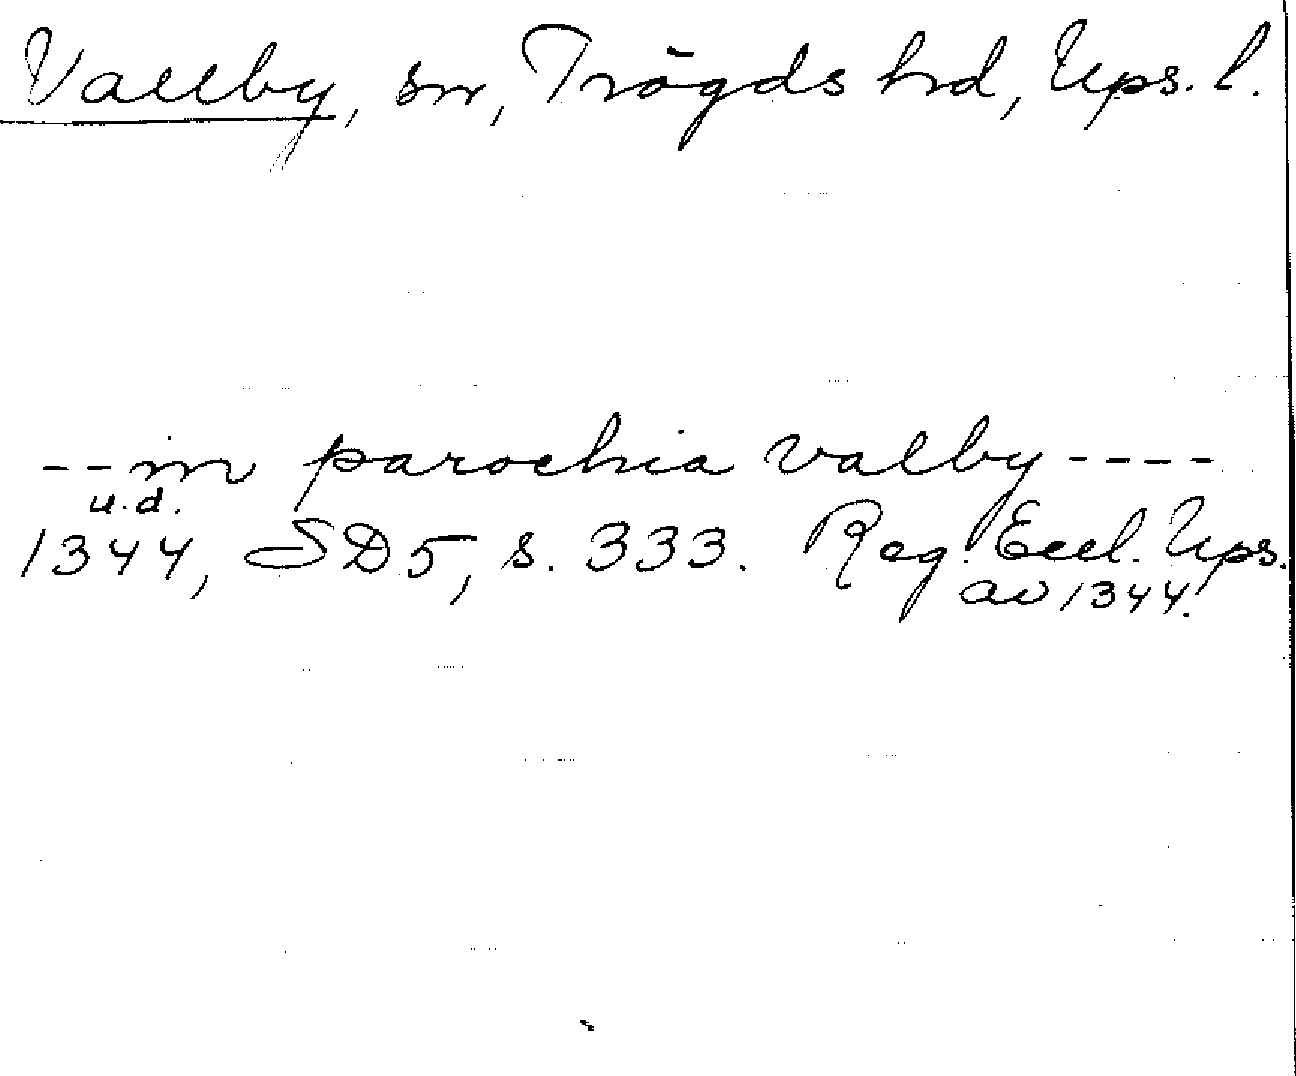 Vallby, sn, Trögds hd, Ups. l.
-- in parochia valby ----
u.d.
1344, SD5, s. 333. Reg. Eccl. Ups.
av 1344.